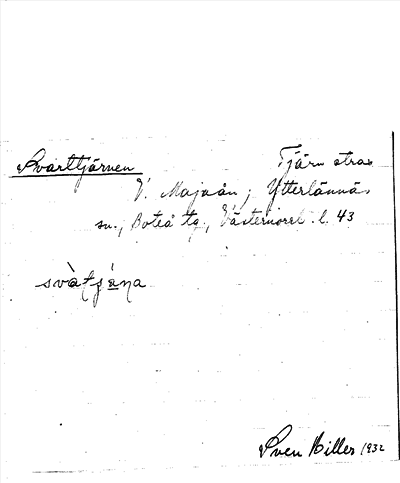 Svarttjärnen Tjärn strax
V. Majaån, Ytterlännäs
sn., Boteå tg., Västernorrl. l. 43
svàtjá̱ɳa
Sven Hiller 1932